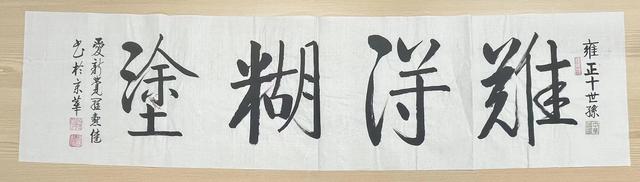 雍正十世孫
難得糊塗
愛新覺羅佳
书於京華